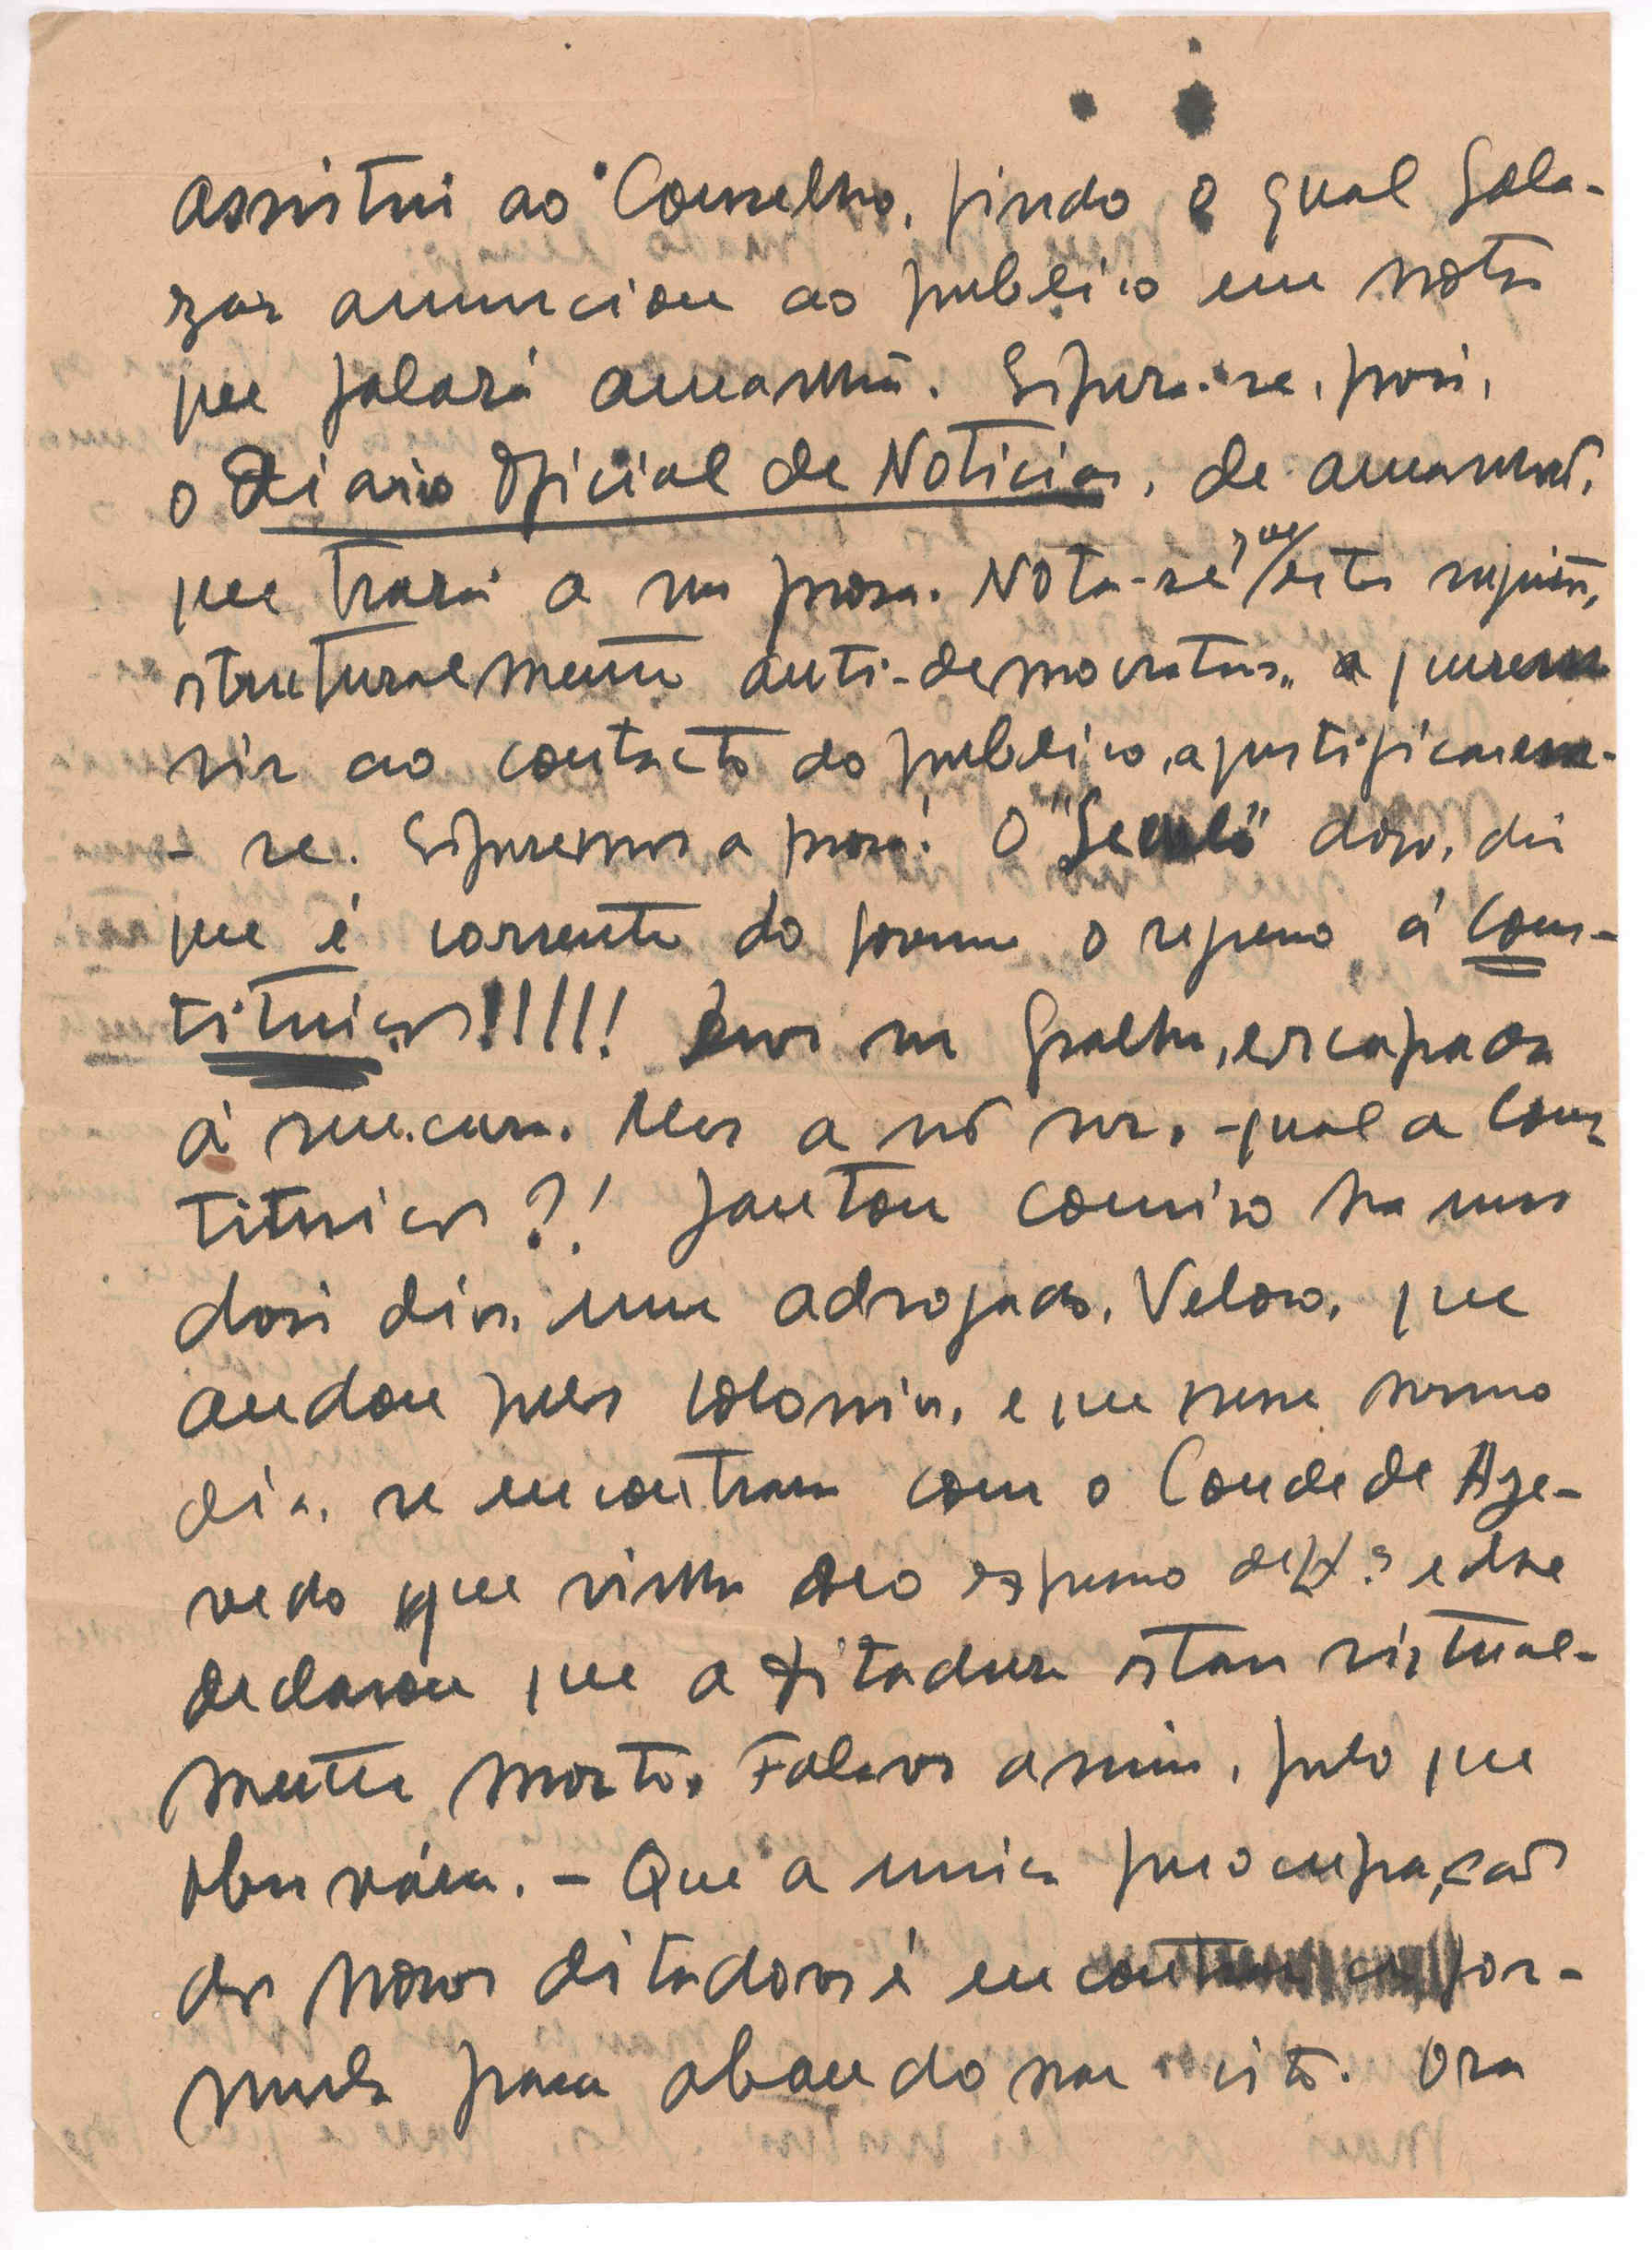 assistui ao Conselho, findo o qual Sala-
zar anunciou ao publico em nota
que falará amanhã. Espera-se, pois,
o Diario Oficial de Noticias, de amanhã,
que trará a sua prosa. Nota-se que estes sujeitos,
struturalmente anti-democratas, a quererem
vir ao contacto do publico, a justificarem-
-se. Esperemos a prosa! O "Seculo" diz
que é corrente do governo o regresso á Cons-
tituição!!!!! Deve ser gralha, escapada
á censura. Mas a não ser, - qual a Cons-
tituição?! Jantou comigo ha uns
dois dias, um advogado, Veloso, que
andou pelas colonias, e que nesse mesmo
dia, se encontrara com o Conde de Aze-
vedo que vinha do e lhe
declarou que a ditadura stava virtual-
mente morta. Falava assim, pelo que
observára. - Que a unica preocupação
dos novos ditadores é encontrar a for-
mula para abandonar isto. Ora